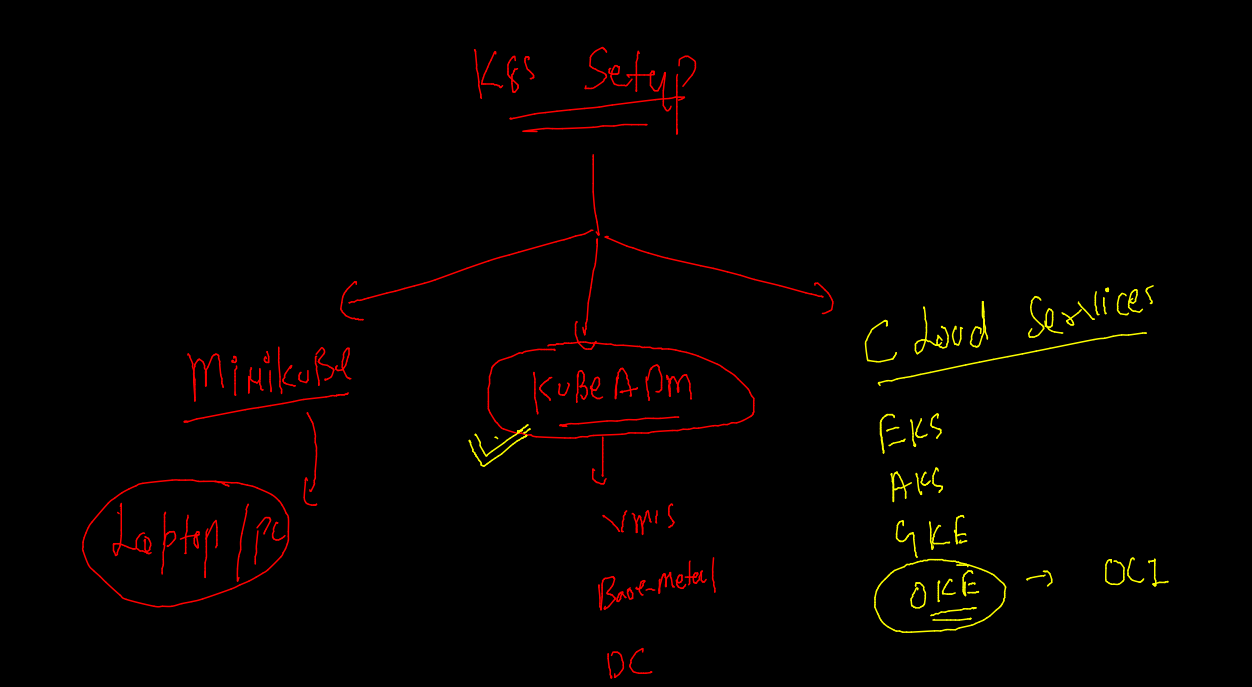 K8s Setup
MiNikuBe
Laptop/pc
KuBeADm
vm's
Bare-metal
DC
Cloud Services
EKS
AKS
GKE
OKE → OCI